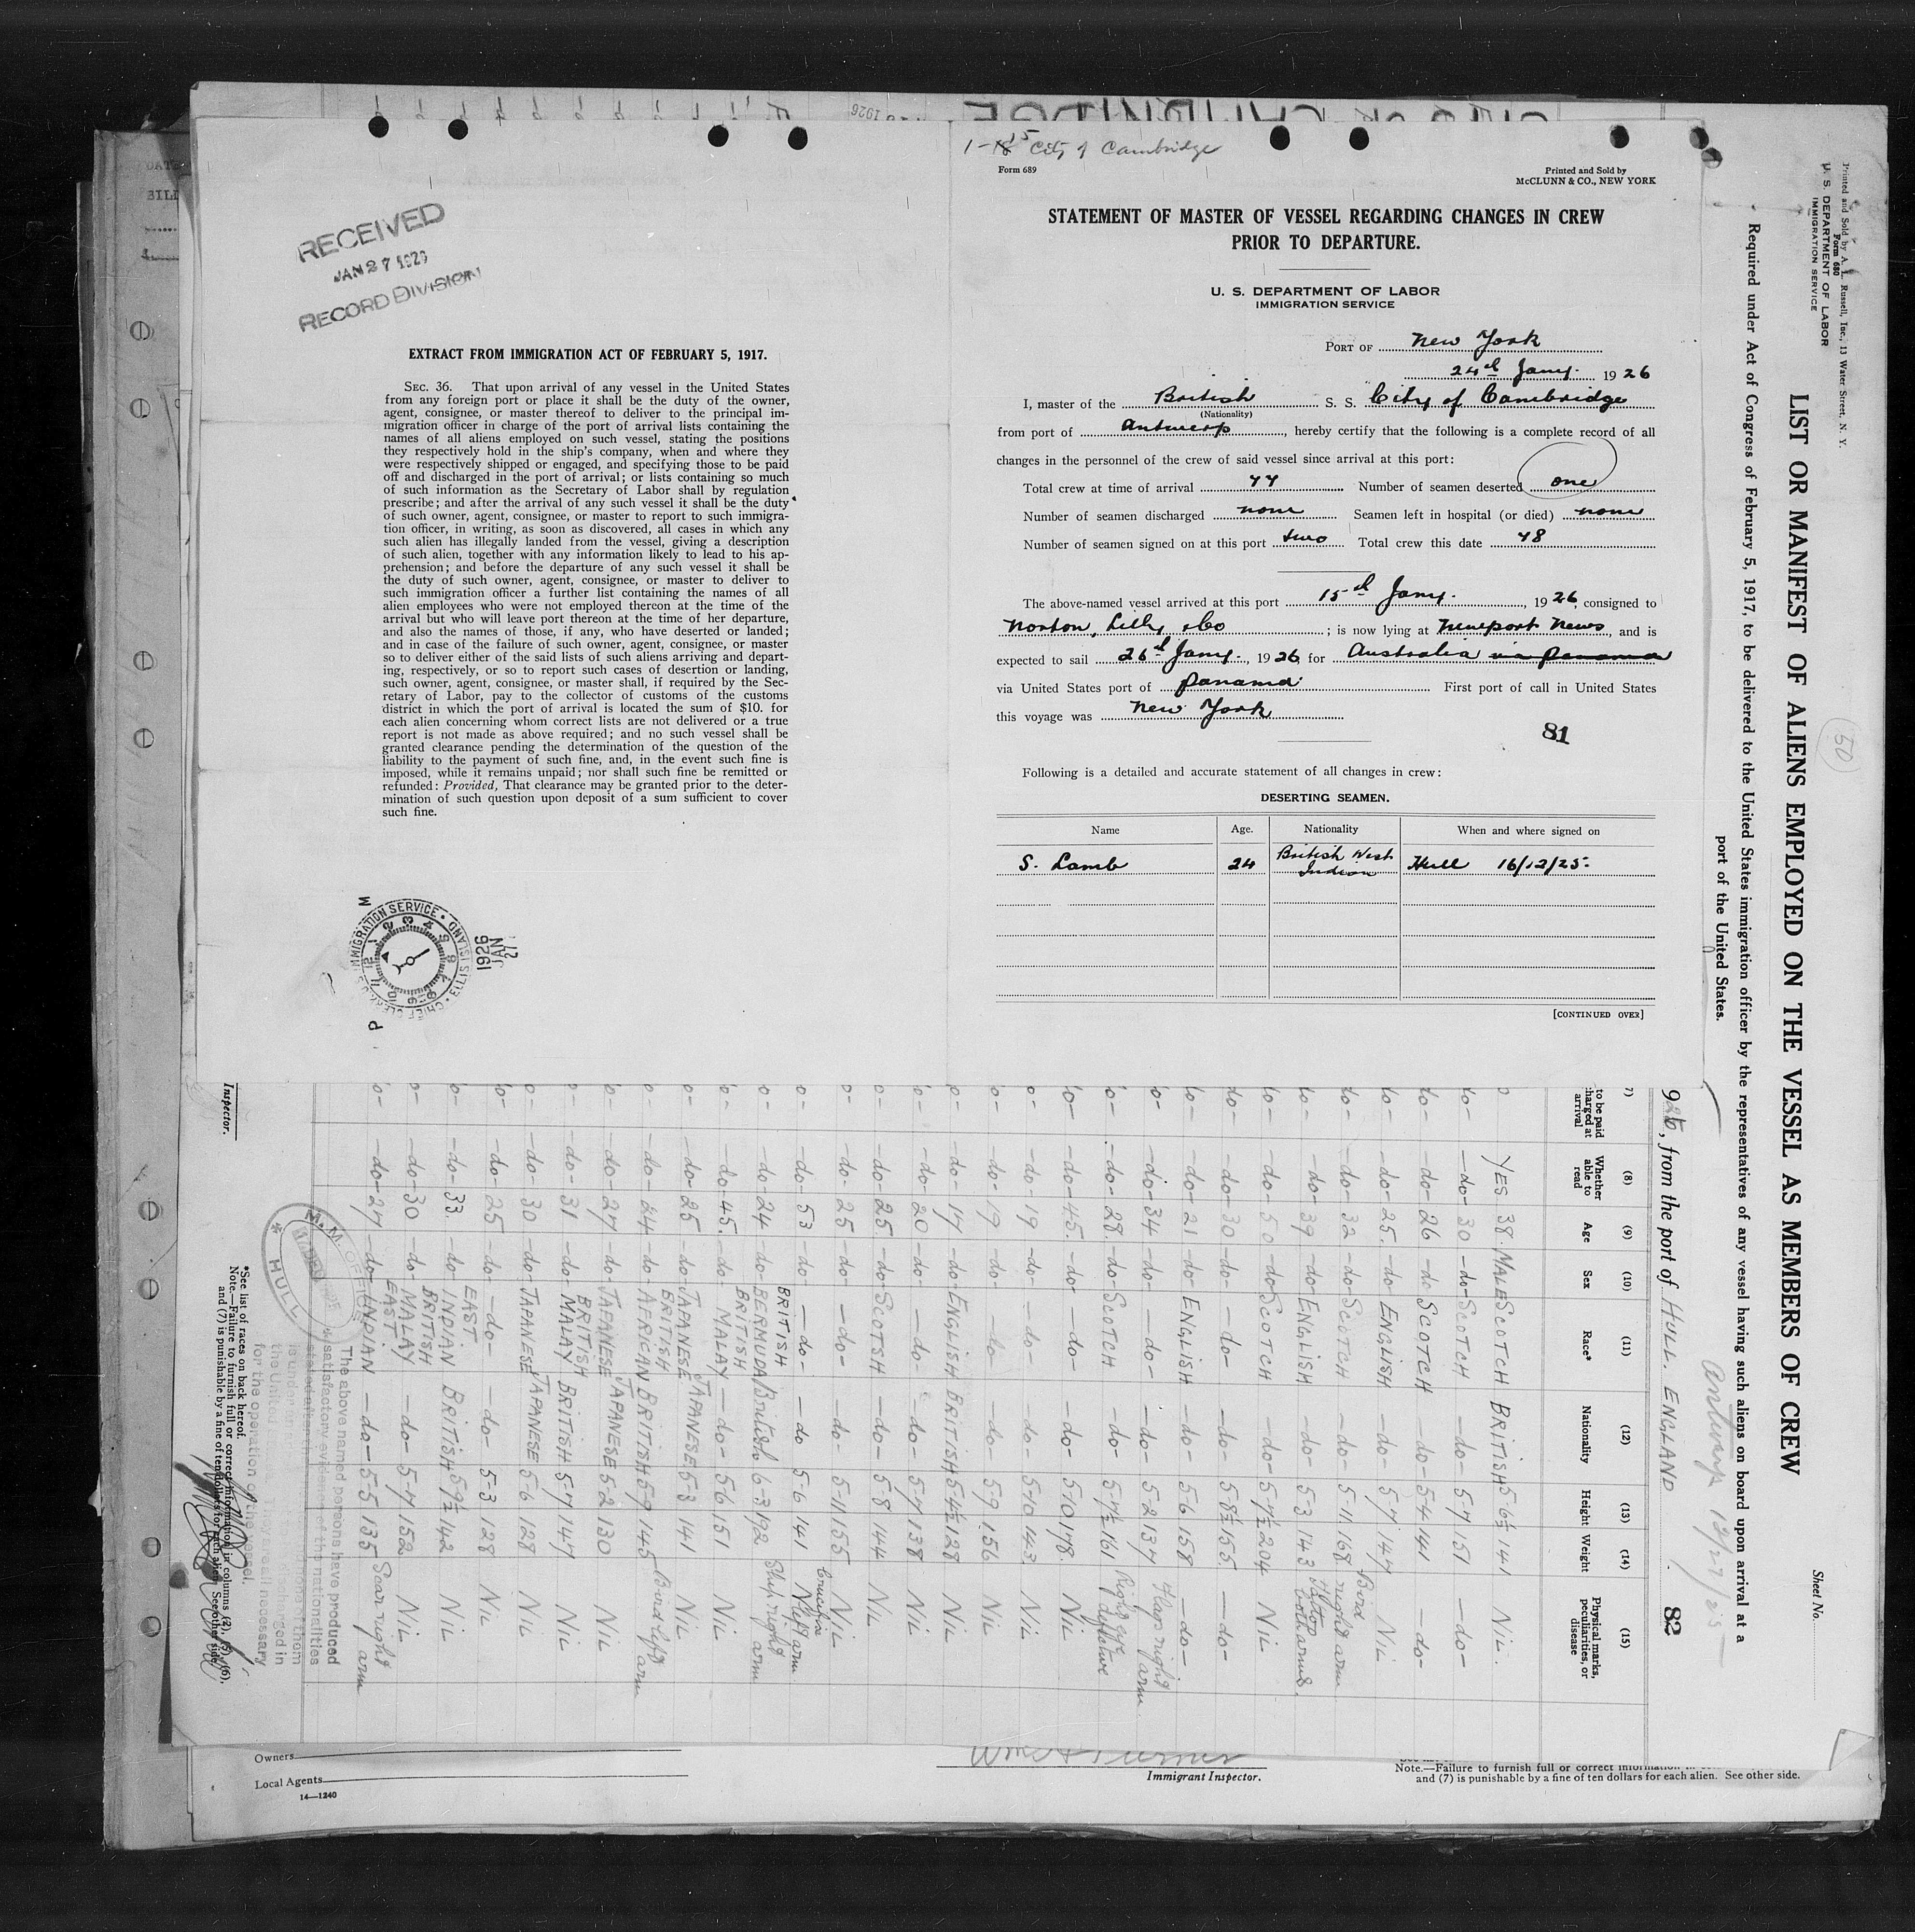 1-15 City of Cambridge
Form 689
Printed and Sold by
McCLUNN & CO., NEW YORK
STATEMENT OF MASTER OF VESSEL REGARDING CHANGES IN CREW
PRIOR TO DEPARTURE.
U. S. DEPARTMENT OF LABOR
IMMIGRATION SERVICE
PORT OF New York
24th Jany. 1926
I, master of the British S. S. City of Cambridge
(Nationality)
from port of Antwerp, hereby certify that the following is a complete record of all
changes in the personnel of the crew of said vessel since arrival at this port:
Total crew at time of arrival 47 Number of seamen deserted one
Number of seamen discharged none Seamen left in hospital (or died) none
Number of seamen signed on at this port two Total crew this date 48
The above-named vessel arrived at this port 15th Jany. , 1926, consigned to
Norton, Lilly & Co ; is now lying at Newport News, and is
expected to sail 26th Jany. , 1926, for Australia via Panama
via United States port of Panama First port of call in United States
this voyage was New York
81
Following is a detailed and accurate statement of all changes in crew:
DESERTING SEAMEN.
Name Age. Nationality When and where signed on
S. Lamb 24 British West Indian Hull 16/12/25.
[CONTINUED OVER]
RECEIVED
JAN 27 1926
RECORD DIVISION
EXTRACT FROM IMMIGRATION ACT OF FEBRUARY 5, 1917.
SEC. 36. That upon arrival of any vessel in the United States
from any foreign port or place it shall be the duty of the owner,
agent, consignee, or master thereof to deliver to the principal im-
migration officer in charge of the port of arrival lists containing the
names of all aliens employed on such vessel, stating the positions
they respectively hold in the ship's company, when and where they
were respectively shipped or engaged, and specifying those to be paid
off and discharged in the port of arrival; or lists containing so much
of such information as the Secretary of Labor shall by regulation
prescribe; and after the arrival of any such vessel it shall be the duty
of such owner, agent, consignee, or master to report to such immigra-
tion officer, in writing, as soon as discovered, all cases in which any
such alien has illegally landed from the vessel, giving a description
of such alien, together with any information likely to lead to his ap-
prehension; and before the departure of any such vessel it shall be
the duty of such owner, agent, consignee, or master to deliver to
such immigration officer a further list containing the names of all
alien employees who were not employed thereon at the time of the
arrival but who will leave port thereon at the time of her departure,
and also the names of those, if any, who have deserted or landed;
and in case of the failure of such owner, agent, consignee, or master
so to deliver either of the said lists of such aliens arriving and depart-
ing, respectively, or so to report such cases of desertion or landing,
such owner, agent, consignee, or master shall, if required by the Sec-
retary of Labor, pay to the collector of customs of the customs
district in which the port of arrival is located the sum of $10. for
each alien concerning whom correct lists are not delivered or a true
report is not made as above required; and no such vessel shall be
granted clearance pending the determination of the question of the
liability to the payment of such fine, and, in the event such fine is
imposed, while it remains unpaid; nor shall such fine be remitted or
refunded: Provided, That clearance may be granted prior to the deter-
mination of such question upon deposit of a sum sufficient to cover
such fine.
27 JAN 1926
Printed and Sold by A. L. Russell, Inc., 13 Water Street, N. Y.
Form 680
U. S. DEPARTMENT OF LABOR
IMMIGRATION SERVICE
50
Sheet No.
LIST OR MANIFEST OF ALIENS EMPLOYED ON THE VESSEL AS MEMBERS OF CREW
Required under Act of Congress of February 5, 1917, to be delivered to the United States immigration officer by the representatives of any vessel having such aliens on board upon arrival at a
port of the United States.
Antwerp 12/27/25
, from the port of HULL. ENGLAND 82
(7) (8) (9) (10) (11) (12) (13) (14) (15)
to be paid
arrival
Whether able to read Age Sex Race* Nationality Height Weight Physical marks, peculiarities, or disease
YES 38 MALE SCOTCH BRITISH 5-6½ 141 NIL.
-do- 30 -do- SCOTCH -do- 5-7 151 -do-
-do- 26 -do- SCOTCH -do- 5-4 141 -do-
-do- 25 -do- ENGLISH -do- 5-7 147 NIL
-do- 32 -do- SCOTCH -do- 5-11 168 Bird right arm
-do- 39 -do- ENGLISH -do- 5-3 143 both arms.
-do- 50 -do- SCOTCH -do- 5-7½ 204 NIL
-do- 30 -do- -do- -do- 5-8½ 155 -do-
-do- 21 -do- ENGLISH -do- 5-6 158 -do-
-do- 34 -do- -do- -do- 5-2 137 Flags right arm
-do- 28 -do- SCOTCH -do- 5-7½ 161 Right eye defective
-do- 45 -do- -do- -do- 5-10 178 NIL
-do- 19 -do- -do- -do- 5-10 143 NIL
-do- 19 -do- -do- -do- 5-9 156 NIL
-do- 17 -do- ENGLISH BRITISH 5-4½ 128 NIL
-do- 20 -do- -do- -do- 5-7 138 NIL
-do- 25 -do- SCOTSH -do- 5-8 144 NIL
-do- 25 -do- -do- -do- 5-11 155 NIL
-do- 53 -do- -do- -do 5-6 141 Crucifix left arm
-do- 24 -do- BRITISH BERMUDA British 6-3 192 Ship right arm
-do- 45 -do- BRITISH MALAY -do- 5-6 151 NIL
-do- 25 -do- JAPANESE JAPANESE 5-3 141 NIL
-do- 24 -do- BRITISH AFRICAN BRITISH 5-9 145 Bird left arm
-do- 27 -do- JAPANESE JAPANESE 5-2 130 NIL
-do- 31 -do- BRITISH MALAY BRITISH 5-7 147 NIL
-do- 30 -do- JAPANESE JAPANESE 5-6 128 NIL
-do- 25 -do- -do- -do- 5-3 128 NIL
-do- 33 -do- EAST INDIAN BRITISH 5-9½ 142 NIL
-do- 30 -do- BRITISH MALAY -do- 5-7 152 NIL
-do- 27 -do- EAST INDIAN -do- 5-5 135 Scar right arm
The above named persons have produced
satisfactory evidence of the nationalities
M. M. OFFICE
HULL
for the operation of the vessel.
*See list of races on back hereof.
Note.—Failure to furnish full or correct information in columns (2), (5), (6),
and (7) is punishable by a fine of ten dollars for each alien. See other side.
Inspector.
Owners
Local Agents
14—1240
Immigrant Inspector.
Note.—Failure to furnish full or correct
and (7) is punishable by a fine of ten dollars for each alien. See other side.